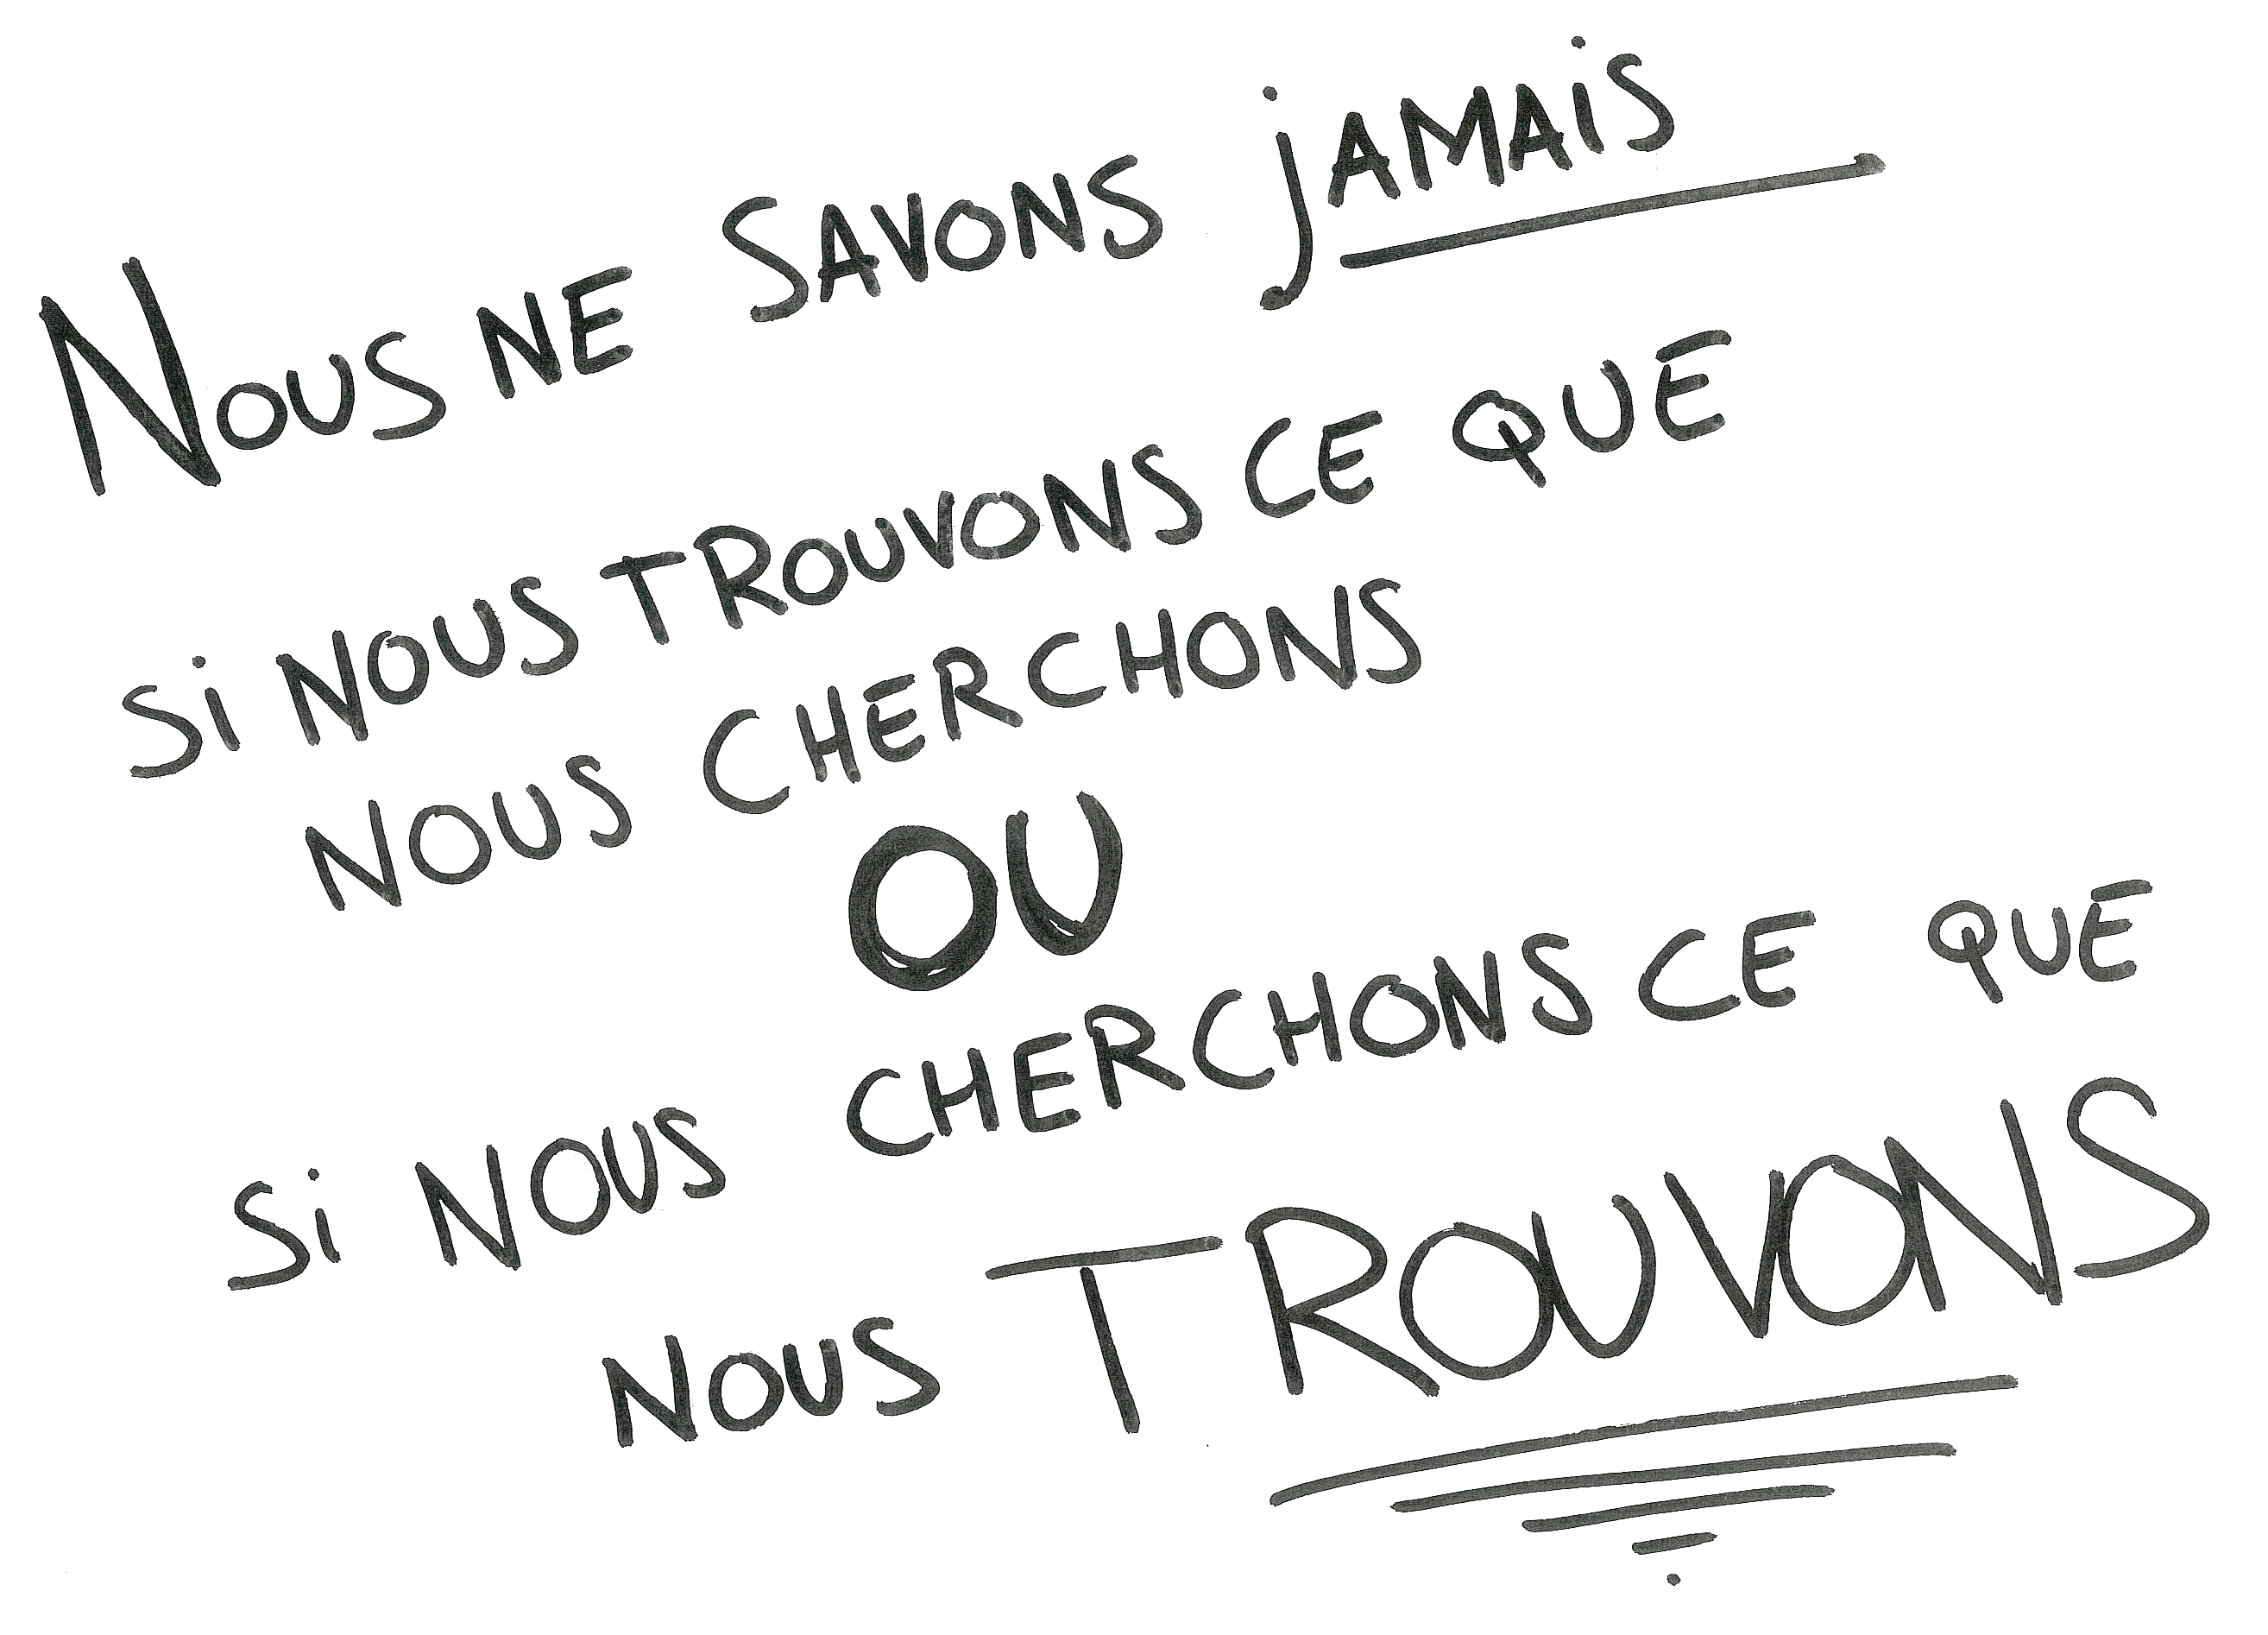 NOUS NE SAVONS jAMAiS
Si NOUS TROUVONS CE QUE
NOUS CHERCHONS
OU
Si NOUS CHERCHONS CE QUE
NOUS TROUVONS